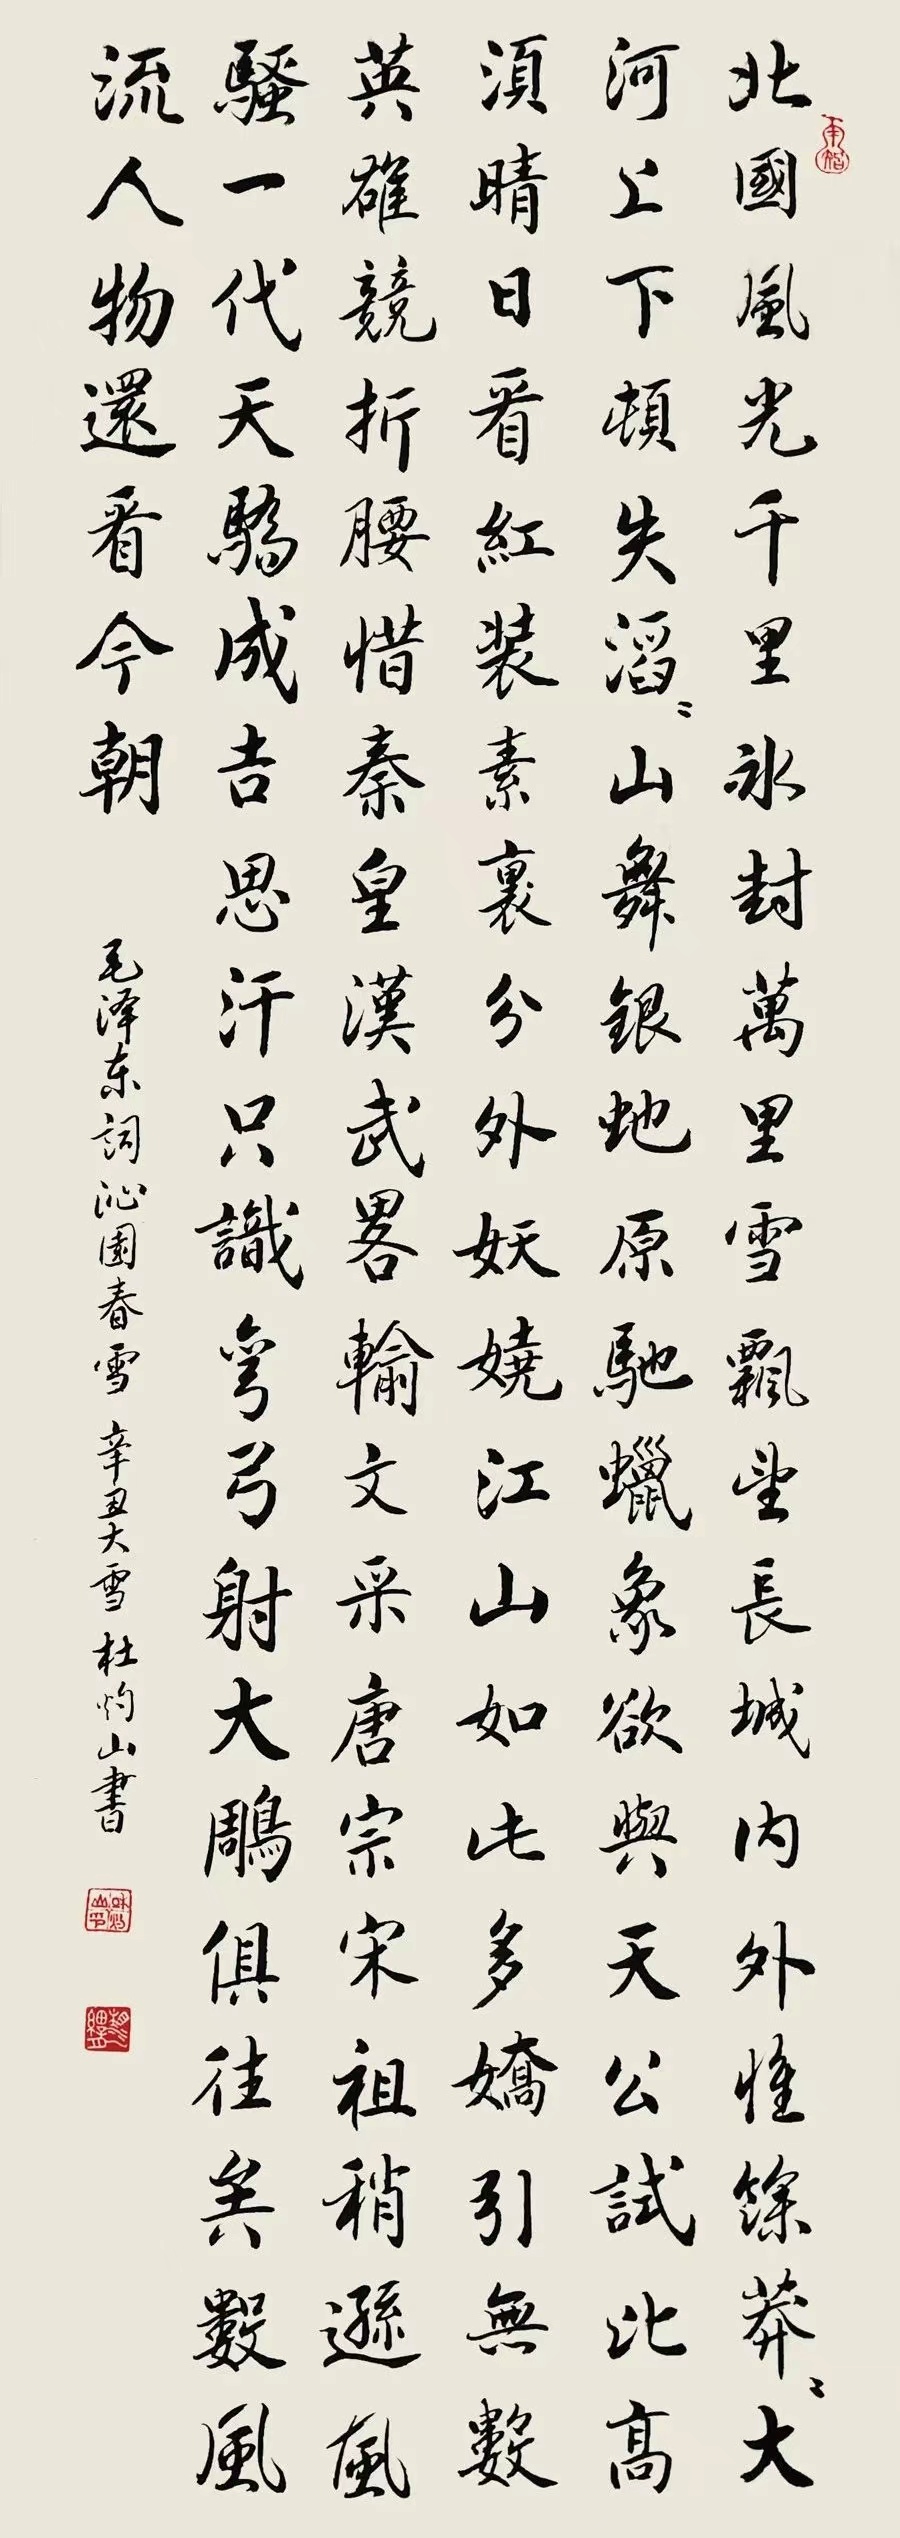 北國風光千里冰封萬里雪飄望長城內外惟餘莽〻大
河上下頓失滔〻山舞銀虵原馳蠟象欲與天公試比高
須晴日看紅裝素裹分外妖嬈江山如此多嬌引無數
英雄競折腰惜秦皇漢武畧輸文采唐宗宋祖稍遜風
騷一代天驕成吉思汗只識彎弓射大鵰俱往矣數風
流人物還看今朝
毛泽东詞沁園春雪 辛丑大雪 杜灼山書